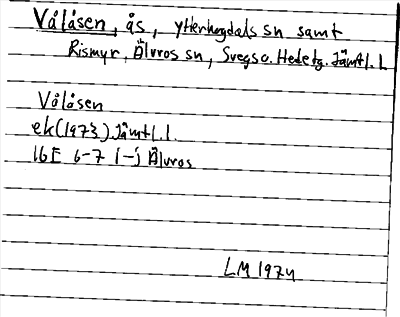 Vålåsen, ås, Ytterhogdals sn samt
Rismyr, Älvros sn, Svegs o. Hede tg. Jämtl. l.
Vålåsen
ek (1973) Jämtl. l.
16E 6-7 i-j Älvros
LM 1974